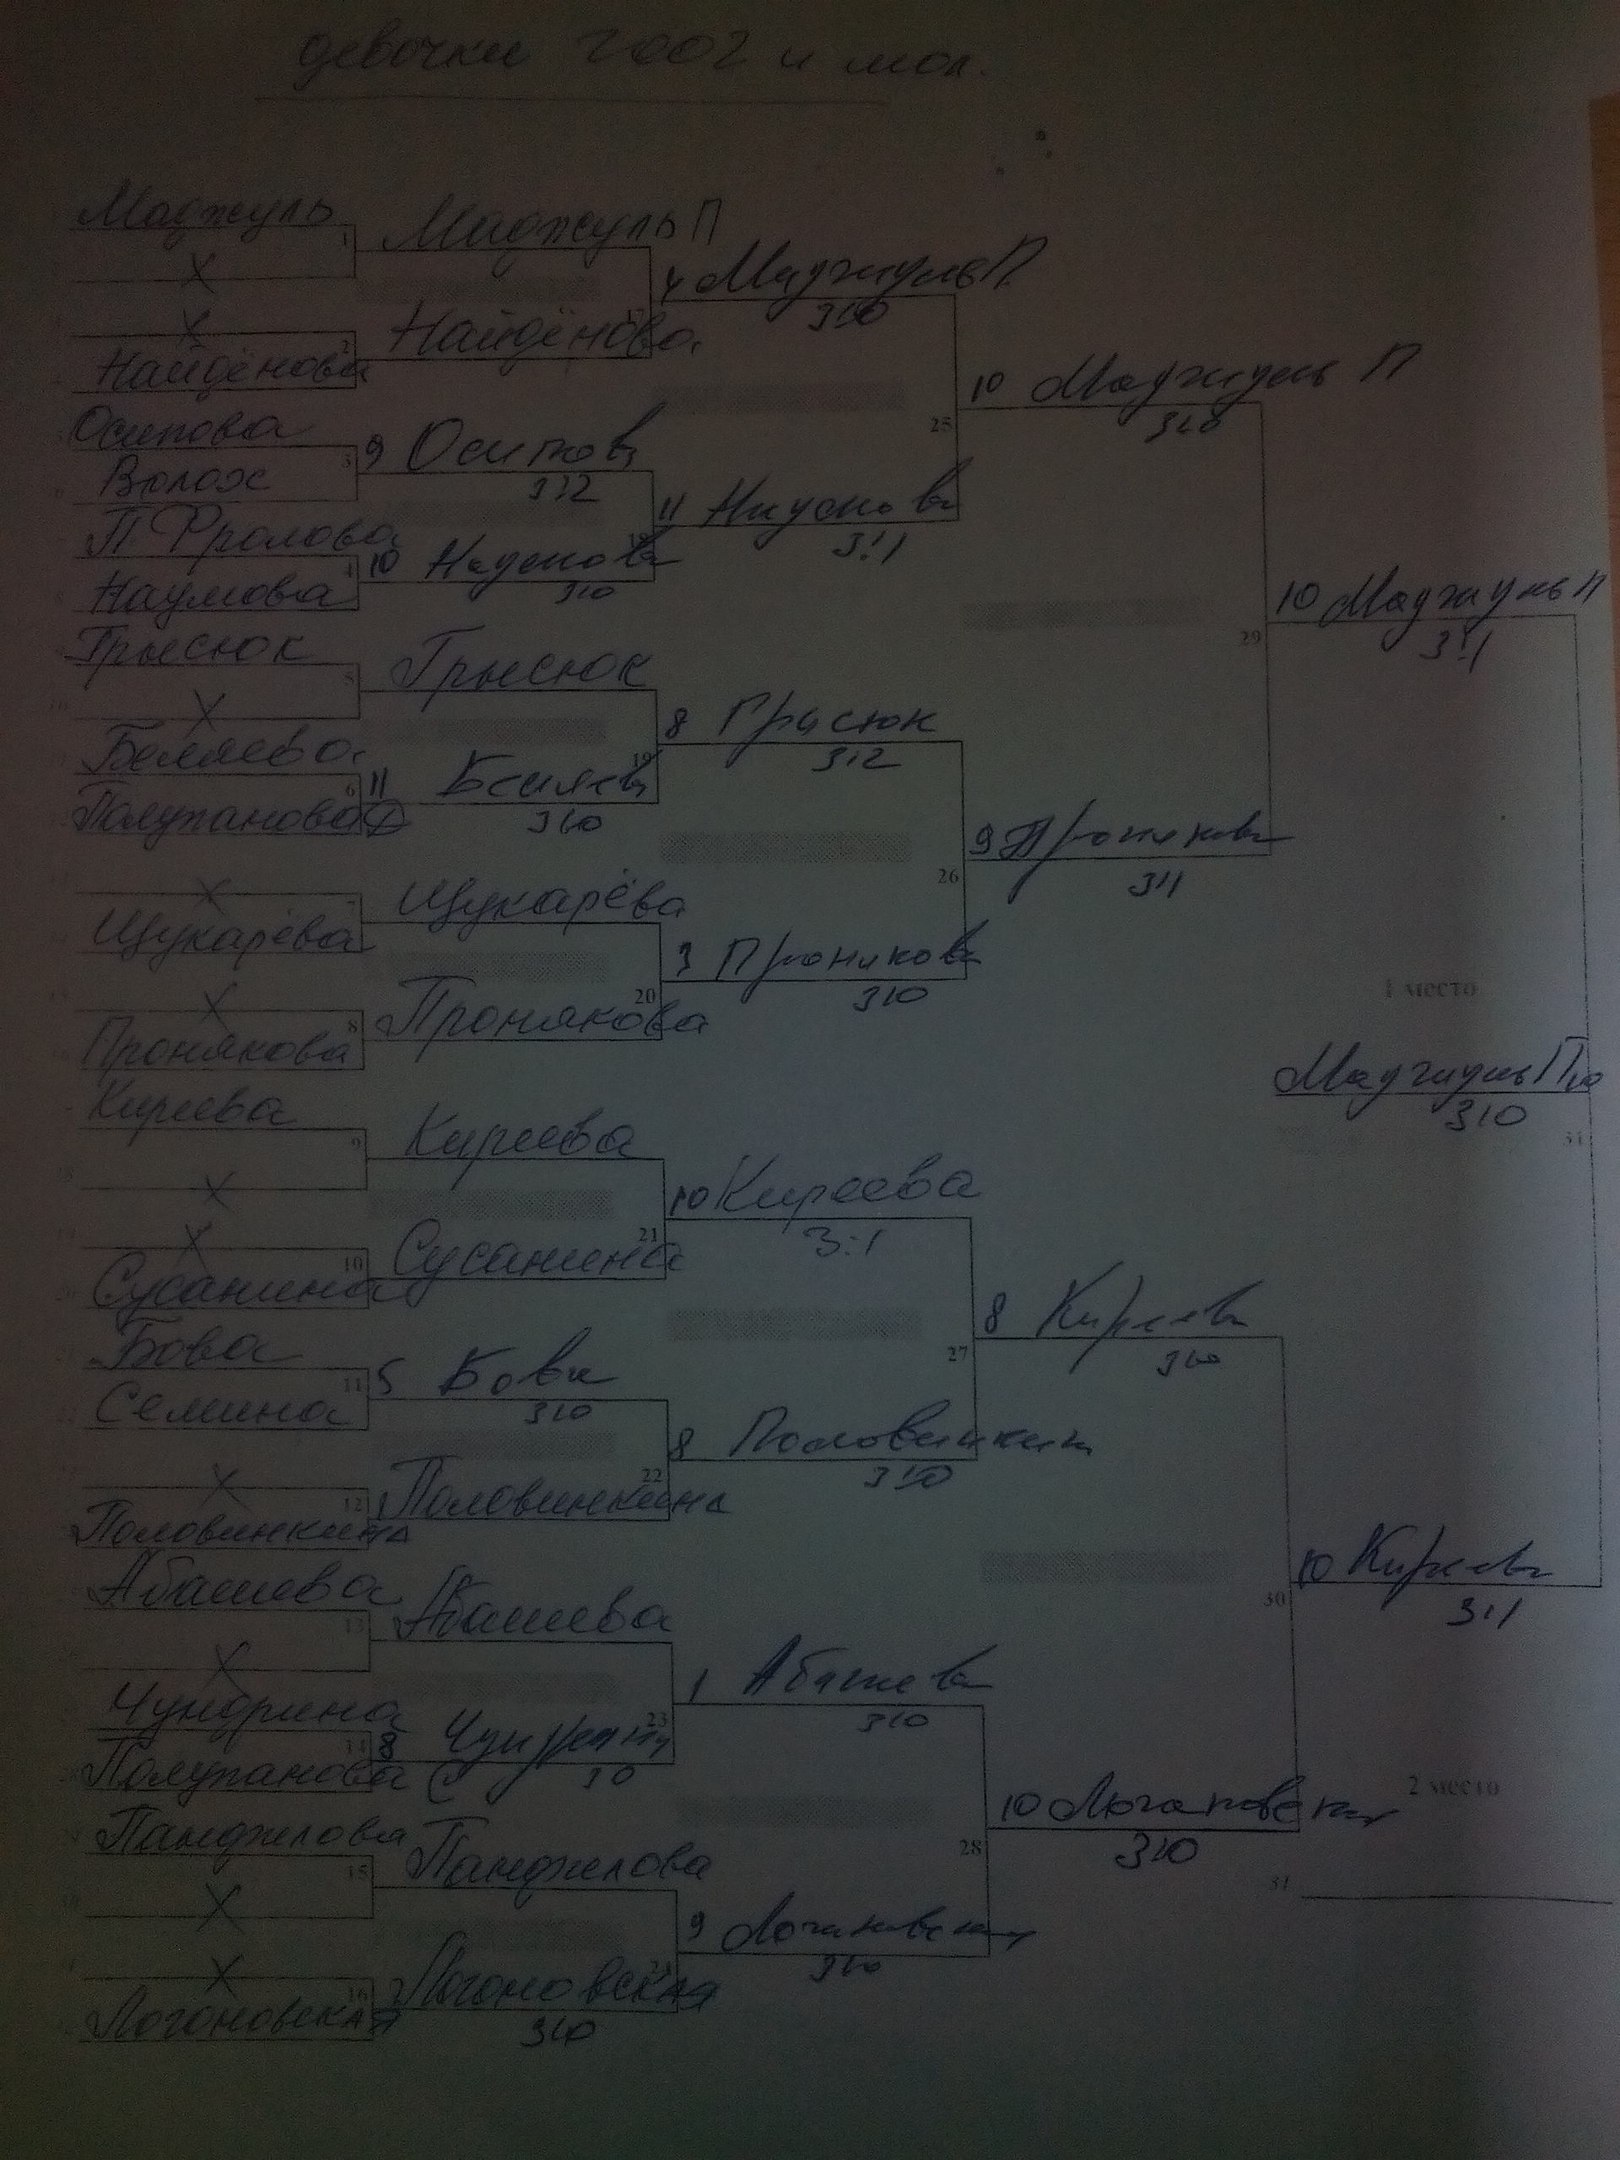 девочки 2002 и мол.
Маджуль
Х
Х
Найдёнова
Осипова
Волох
П Фролова
Наумова
Грысюк
Х
Беляева
Полупанова
Х
Щукарёва
Х
Пронякова
Киреева
Х
Х
Сусанина
Бова
Семина
Х
Половинкина
Абашева
Х
Чундрина
Полупанова С
Панфилова
Х
Х
Логоновская
1
2
3
4
5
6
7
8
9
10
11
12
13
14
15
16
Маджуль П
Найдёнова
9 Осипов
3:2
10 Наумова
3:0
Грысюк
11 Беляев
3:0
Щукарёва
Пронякова
Киреева
Сусанина
5 Бова
3:0
Половинкина
Абашева
8
Панфилова
Логоновская
3:0
17
18
19
20
21
22
23
24
4 Маджуль П
3:0
11
3:1
8 Грысюк
3:2
3
3:0
10 Киреева
3:1
8 Половинкин
3:0
1 Абашева
3:0
9
3:0
25
26
27
28
10 Маджуль П
3:0
9
3:1
8 Киреева
3:0
10
3:0
29
30
10 Маджуль П
3:1
10 Киреева
3:1
1 место
Маджуль П
3:0
31
2 место
31